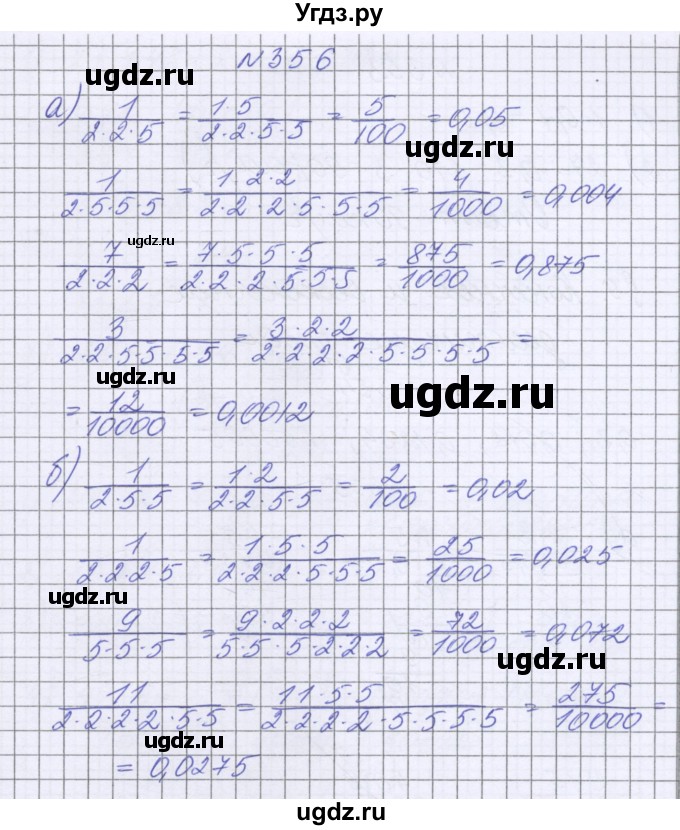 Угдз.ру
N356
ugdz.ru
а) 1/(2·2·5) = (1·5)/(2·2·5·5) = 5/100 = 0,05
ugdz.ru
1/(2·5·5·5) = (1·2·2)/(2·2·2·5·5·5) = 4/1000 = 0,004
ugdz.ru
7/(2·2·2) = (7·5·5·5)/(2·2·2·5·5·5) = 875/1000 = 0,875
3/(2·2·5·5·5·5) = (3·2·2)/(2·2·2·2·5·5·5·5) =
ugdz.ru
ugdz.ru
= 12/10000 = 0,0012
б) 1/(2·5·5) = (1·2)/(2·2·5·5) = 2/100 = 0,02
1/(2·2·2·5) = (1·5·5)/(2·2·2·5·5·5) = 25/1000 = 0,025
ugdz.ru
9/(5·5·5) = (9·2·2·2)/(5·5·5·2·2·2) = 72/1000 = 0,072
ugdz.ru
11/(2·2·2·2·5·5) = (11·5·5)/(2·2·2·2·5·5·5·5) = 275/10000 =
ugdz.ru
= 0,0275
ugdz.ru